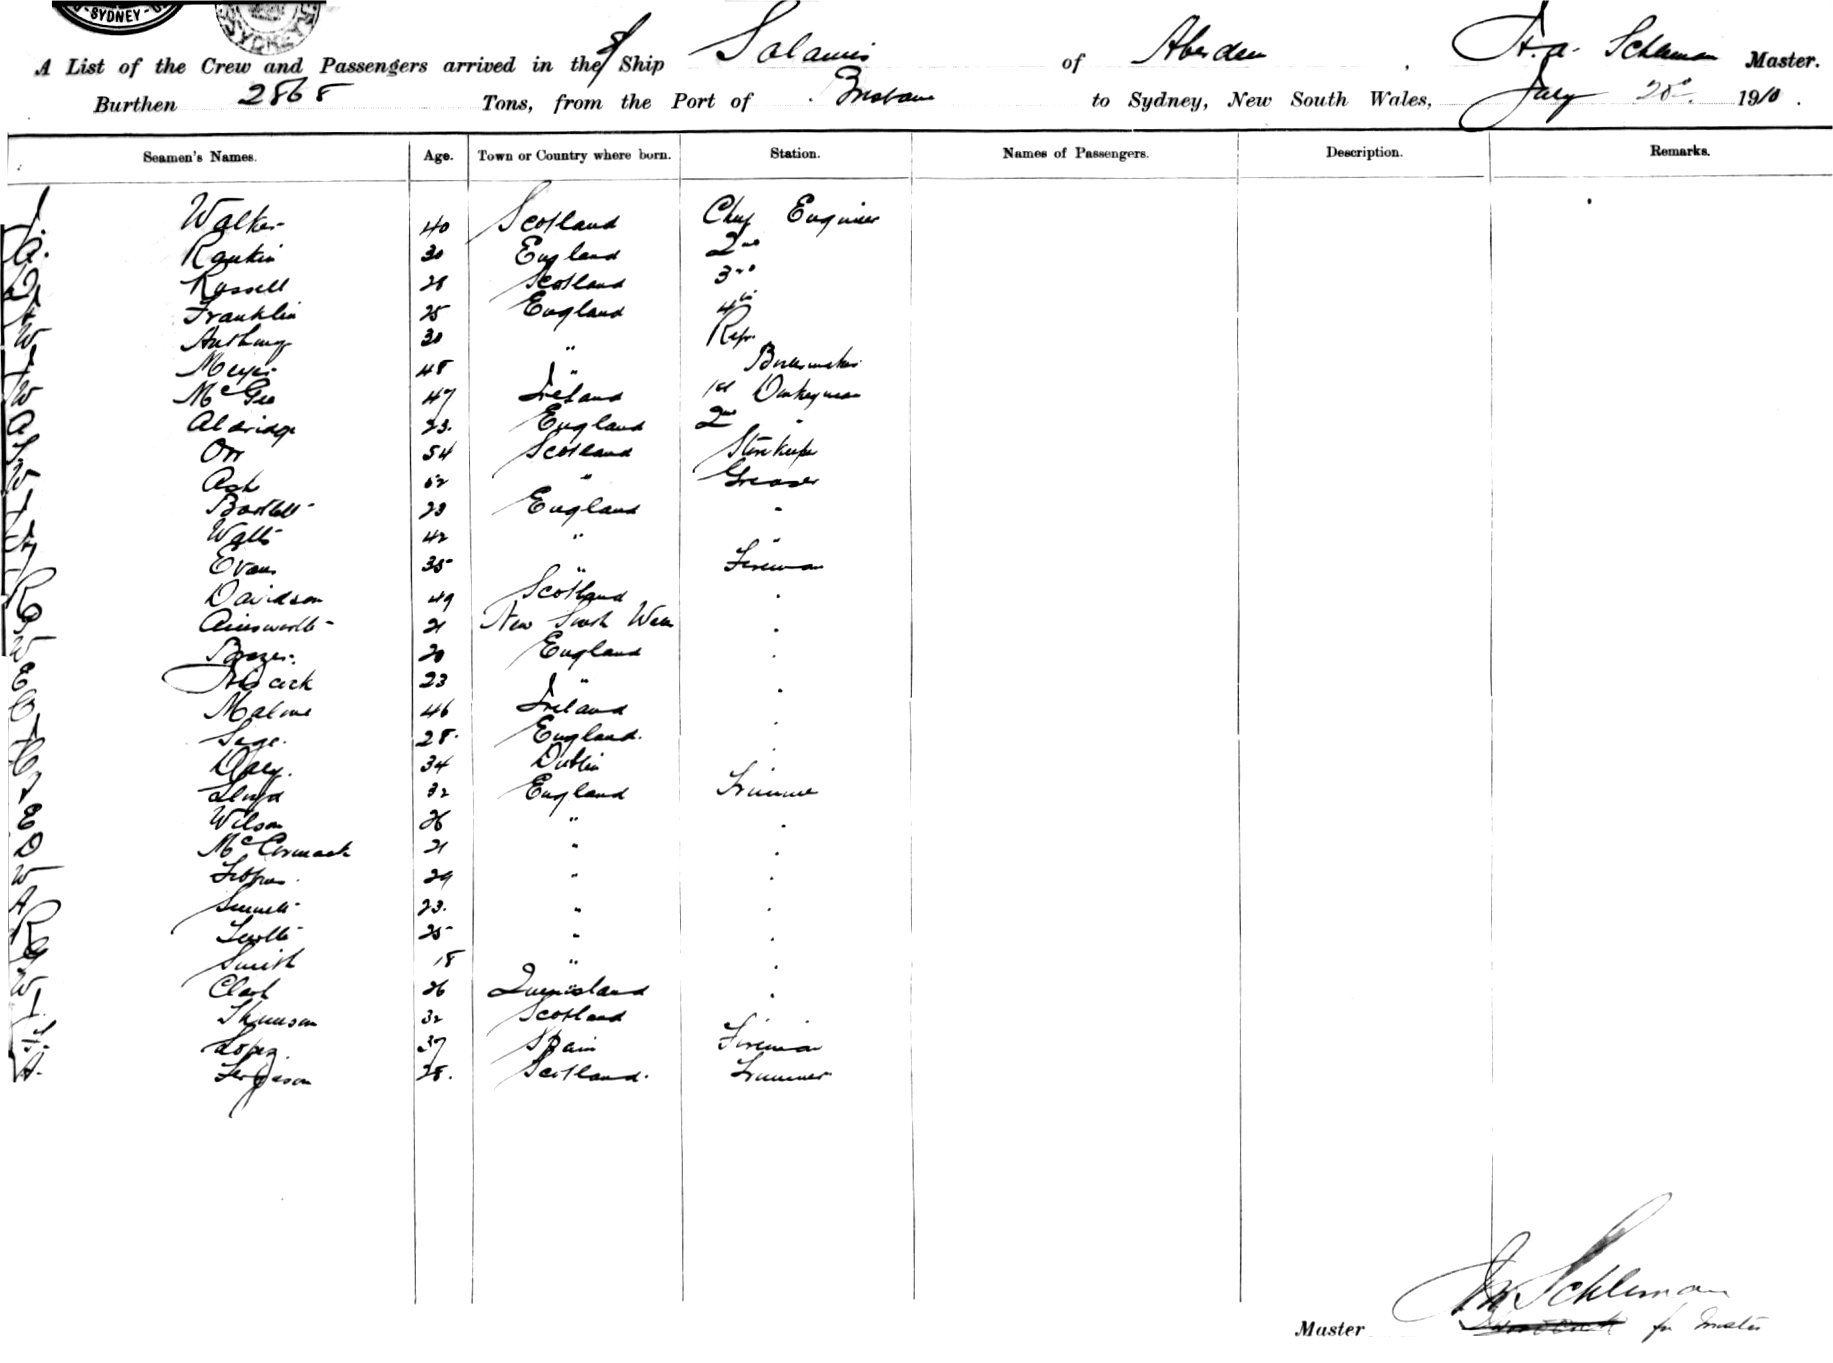 SYDNEY
SYDNEY
A List of the Crew and Passengers arrived in the S/ Ship Salamis of Aberdeen H. A. Schleman Master.
Burthen 2868 Tons, from the Port of Brisbane to Sydney, New South Wales, July 1910.
Seamen's Names. Age. Town or Country where born. Station. Names of Passengers. Description. Remarks.
Walker 40 Scotland Chief Engineer
A. Rankin 30 England 2nd
Russell 28 Scotland 3rd
Franklin 25 England 4th
W Anthony 30 " Refr.
Meyer 48 " Boilermaker
W McGee 47 Ireland 1st Donkeyman
A Aldridge 23. England 2nd "
Orr 54 Scotland Storekeeper
Ash 52 " Greaser
Bartlett 23 England "
Watts 42 " "
Evans 35 " Fireman
Davidson 49 Scotland "
Ainsworth 21 New South Wales "
20 England "
E 23 " "
Malone 46 Ireland "
Sage. 28. England. "
C Daly. 34 Dublin "
L Lloyd 32 England Trimmer
E Wilson 26 " "
D McCormack 21 " "
W 29 " "
A 23. " "
25 " "
Smith 18 " "
W Clark 26 Queensland "
Thomson 32 Scotland "
Lopez. 37 Spain Fireman
A. Ferguson 28. Scotland. Trimmer
Schleman
Master for Master